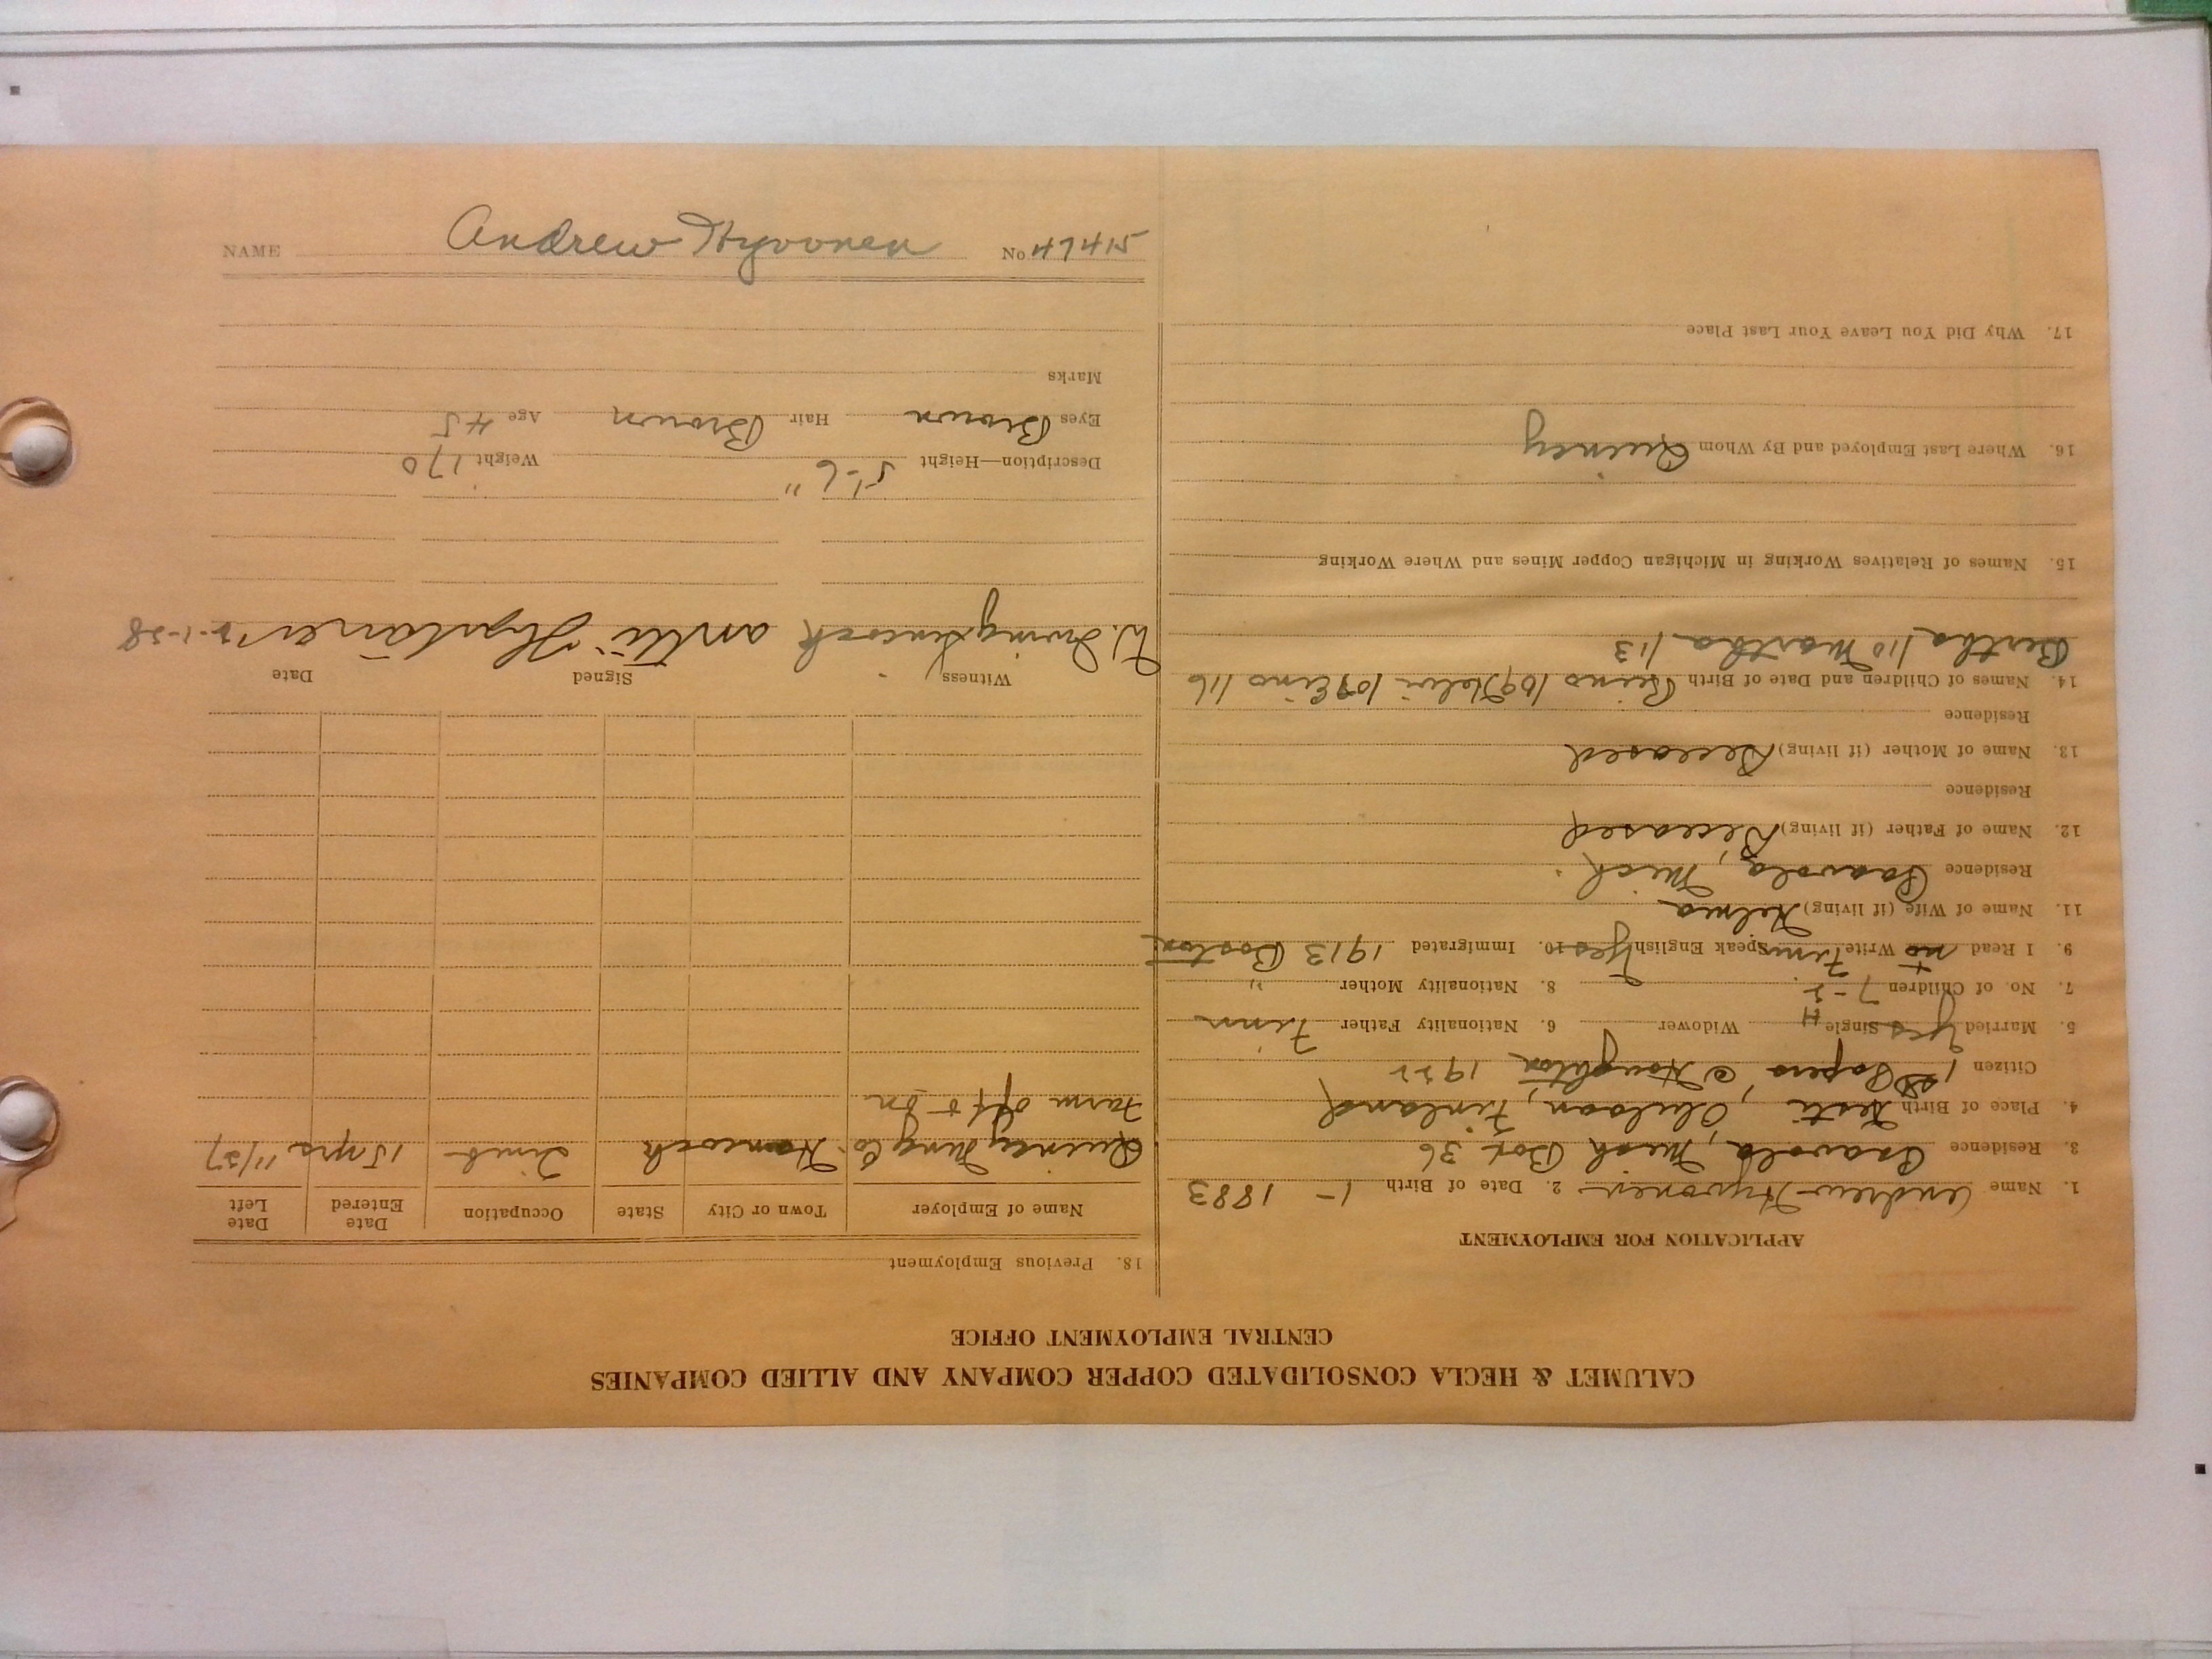 CALUMET & HECLA CONSOLIDATED COPPER COMPANY AND ALLIED COMPANIES
CENTRAL EMPLOYMENT OFFICE
APPLICATION FOR EMPLOYMENT
1. Name Andrew Hyvonen 2. Date of Birth 1- 1883
3. Residence Paavola, Mich Box 36
4. Place of Birth Oulu, Finland
Citizen 1st Papers, @ Houghton 1922
5. Married Yes Single Widower 6. Nationality Father Finn
7. No. of Children 7-2 8. Nationality Mother "
9. I Read no Write Finn Speak English Yes 10. Immigrated 1913 Boston
11. Name of Wife (if living) Helma
Residence Paavola, Mich.
12. Name of Father (if living) Deceased
Residence
13. Name of Mother (if living) Deceased
Residence
14. Names of Children and Date of Birth Reino 109 Helvi 107 Eino 116
Bertha 110 Martha 113
15. Names of Relatives Working in Michigan Copper Mines and Where Working
16. Where Last Employed and By Whom Quincy
17. Why Did You Leave Your Last Place
18. Previous Employment
Name of Employer Town or City State Occupation Date Entered Date Left
Quincy Mng Co. Hancock Timb 15 yrs 11/27
Farm off & on
Witness Signed Date
W. Irving Antti 2-1-28
Description—Height 5'-6" Weight 170
Eyes Brown Hair Brown Age 45
Marks
NAME Andrew Hyvonen No